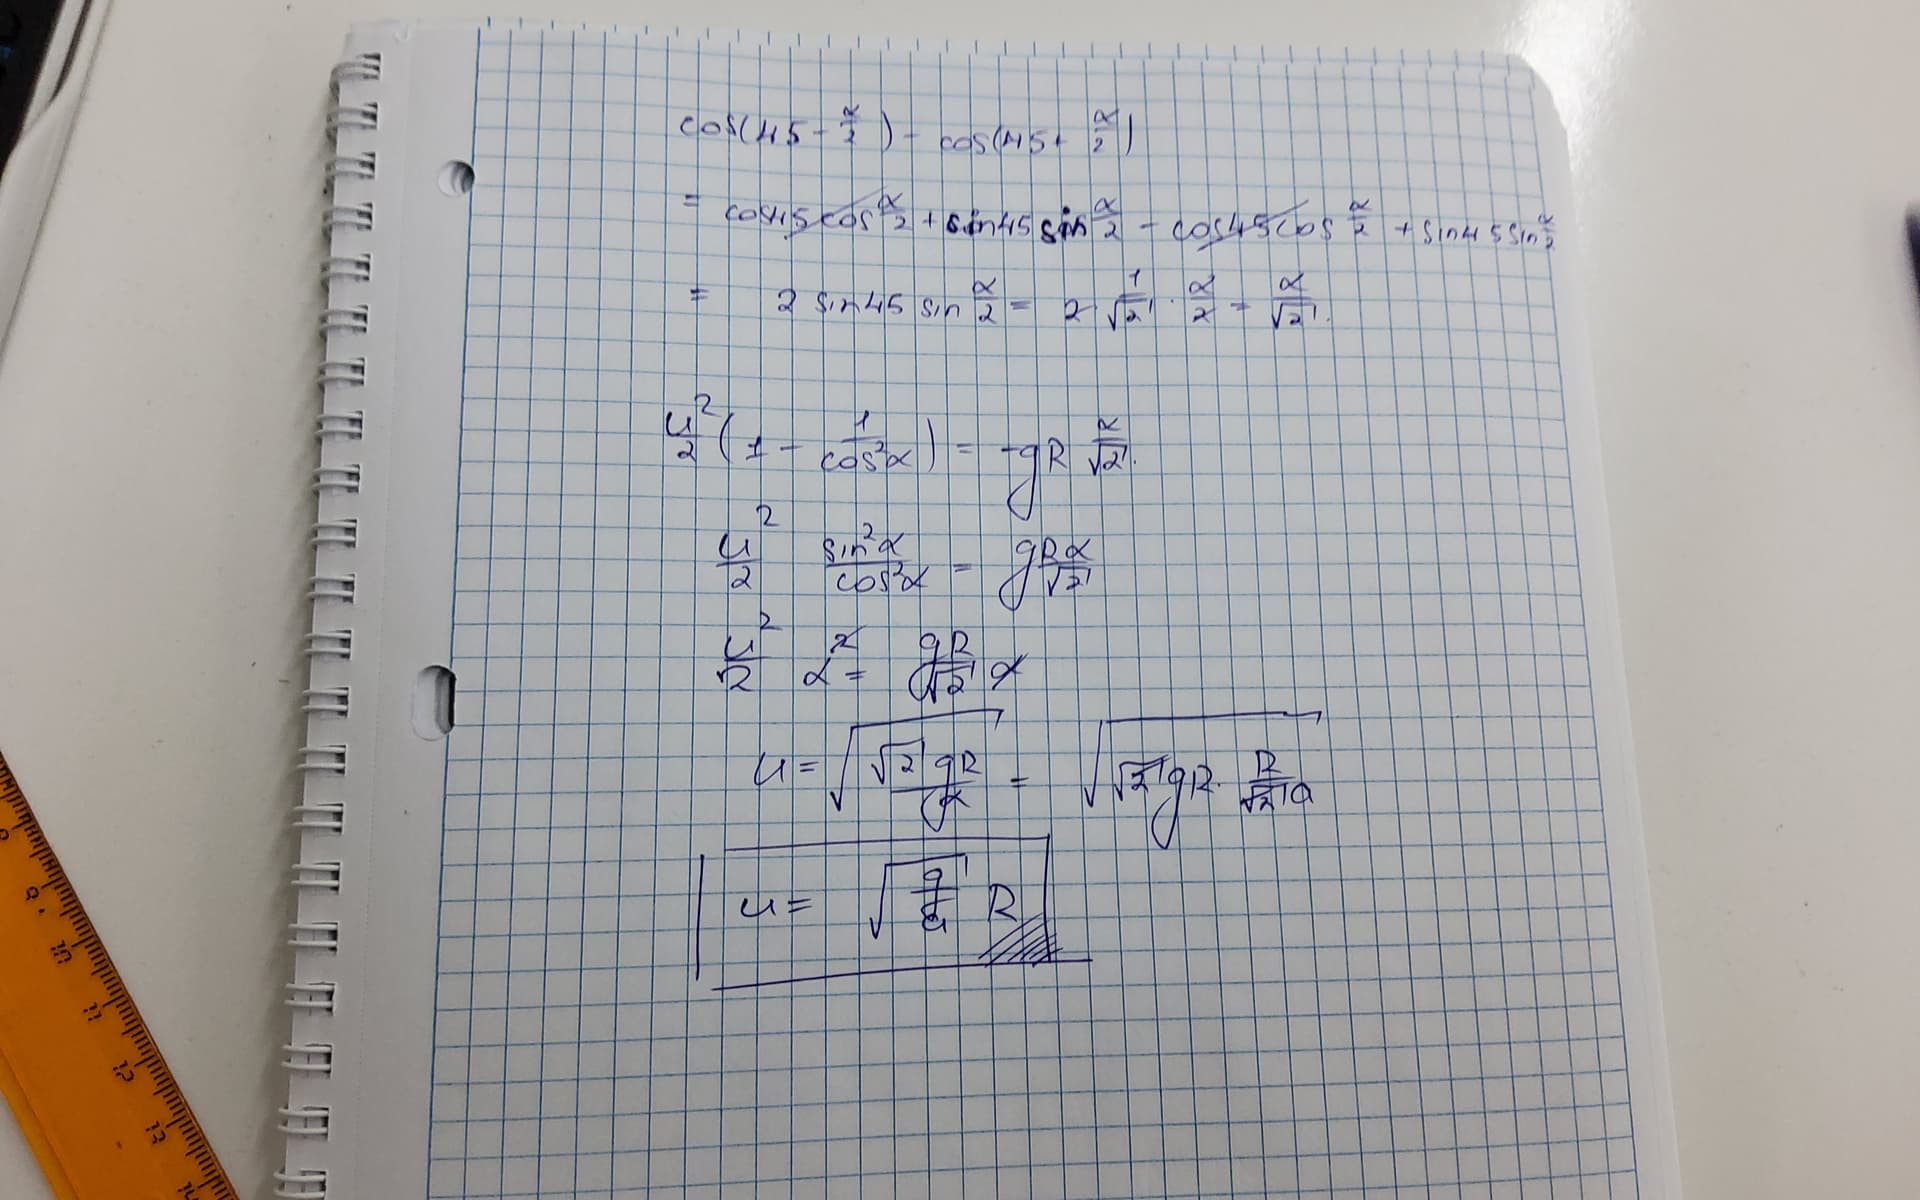 cos(45 - α/2) - cos(45 + α/2)
= cos45 cos α/2 + sin45 sin α/2 - cos45 cos α/2 + sin45 sin α/2
= 2 sin45 sin α/2 = 2 1/√2 · α/2 = α/√2.
u²/2 (1 - 1/cos²α) = -gR α/√2.
u²/2 sin²α/cos²α = gRα/√2
u²/2 α² = gR/√2 α
u = √(√2 gR/α) = √(√2 gR · R/√2 a)
u = √(g/a) R